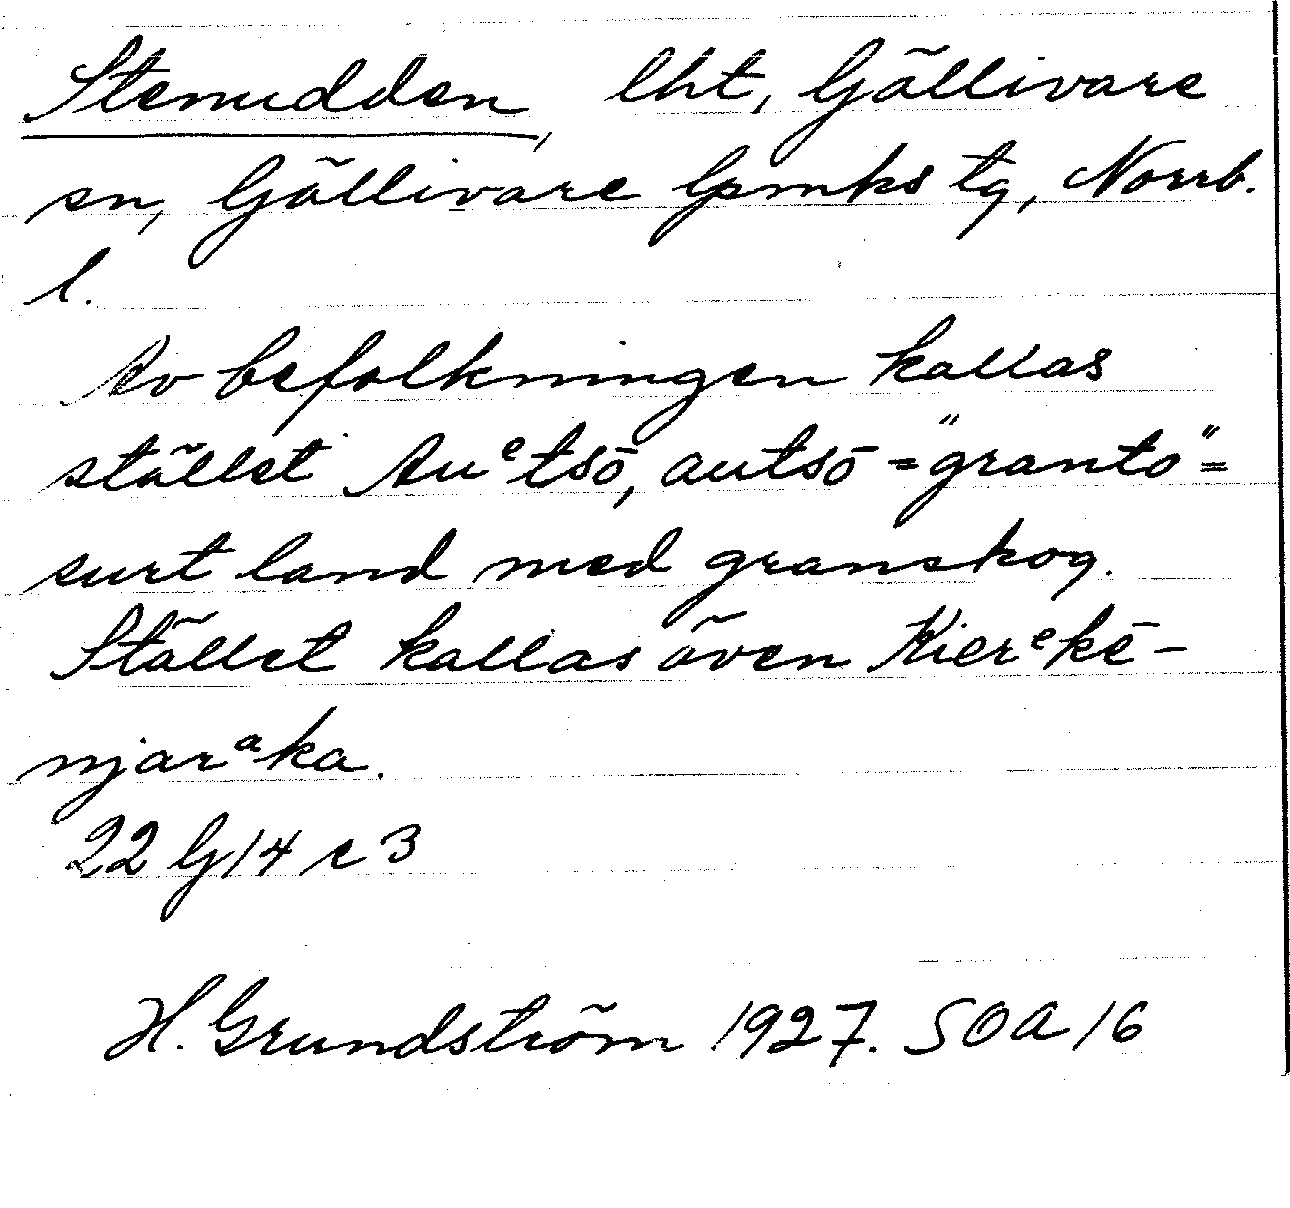 Stenudden, lht, Gällivare
sn, Gällivare lpmks tg, Norrb.
l.
Av befolkningen kallas
stället Auᵉtsō, autsō = "granto" =
surt land med granskog.
Stället kallas även Kierᵉkē-
njarᵃka.
22 G 14 c 3
H. Grundström 1927. SOA 16